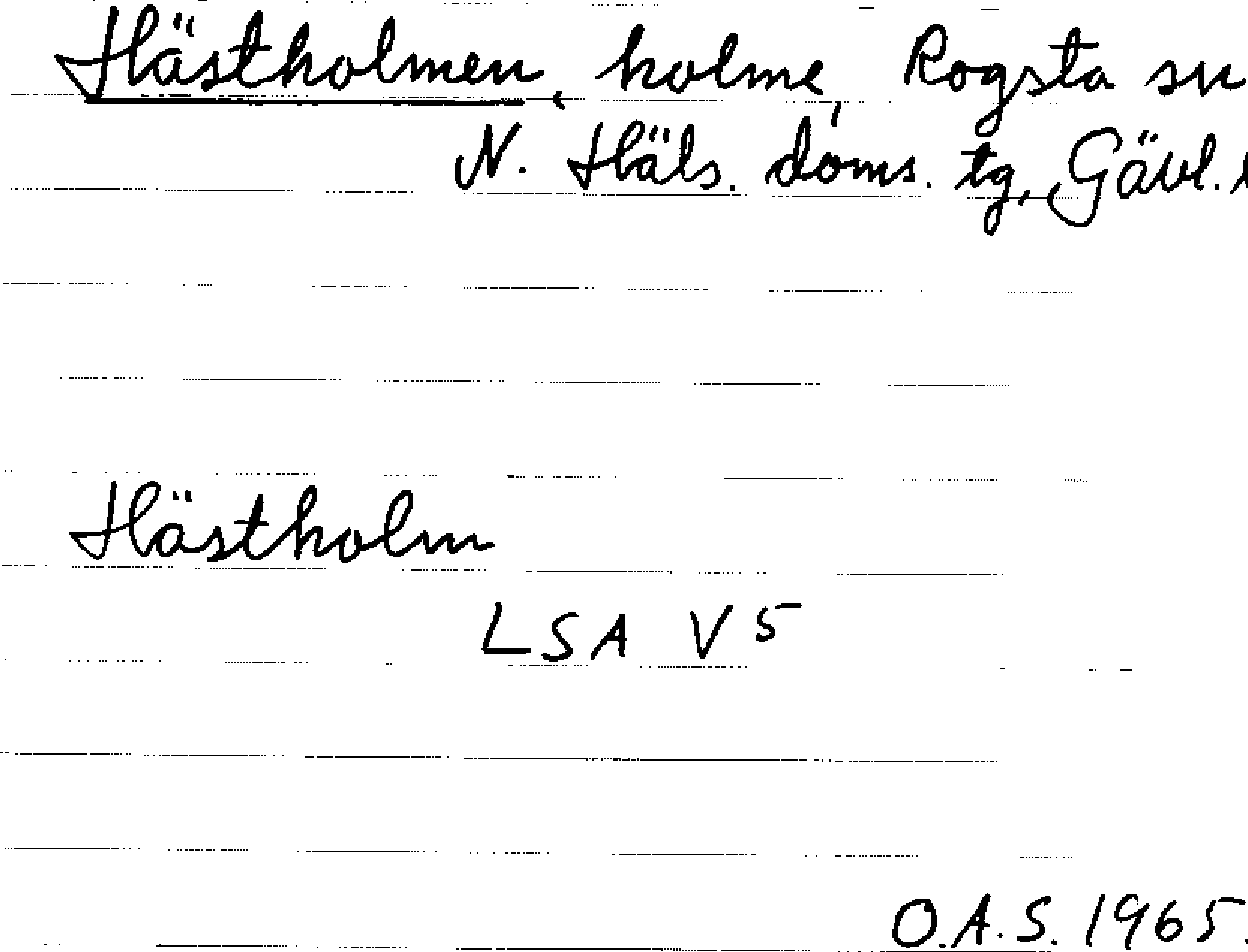 Hästholmen, holme, Rogsta sn
N. Häls. doms. tg, Gävl.
Hästholm
LSA V 5
O.A.S. 1965.